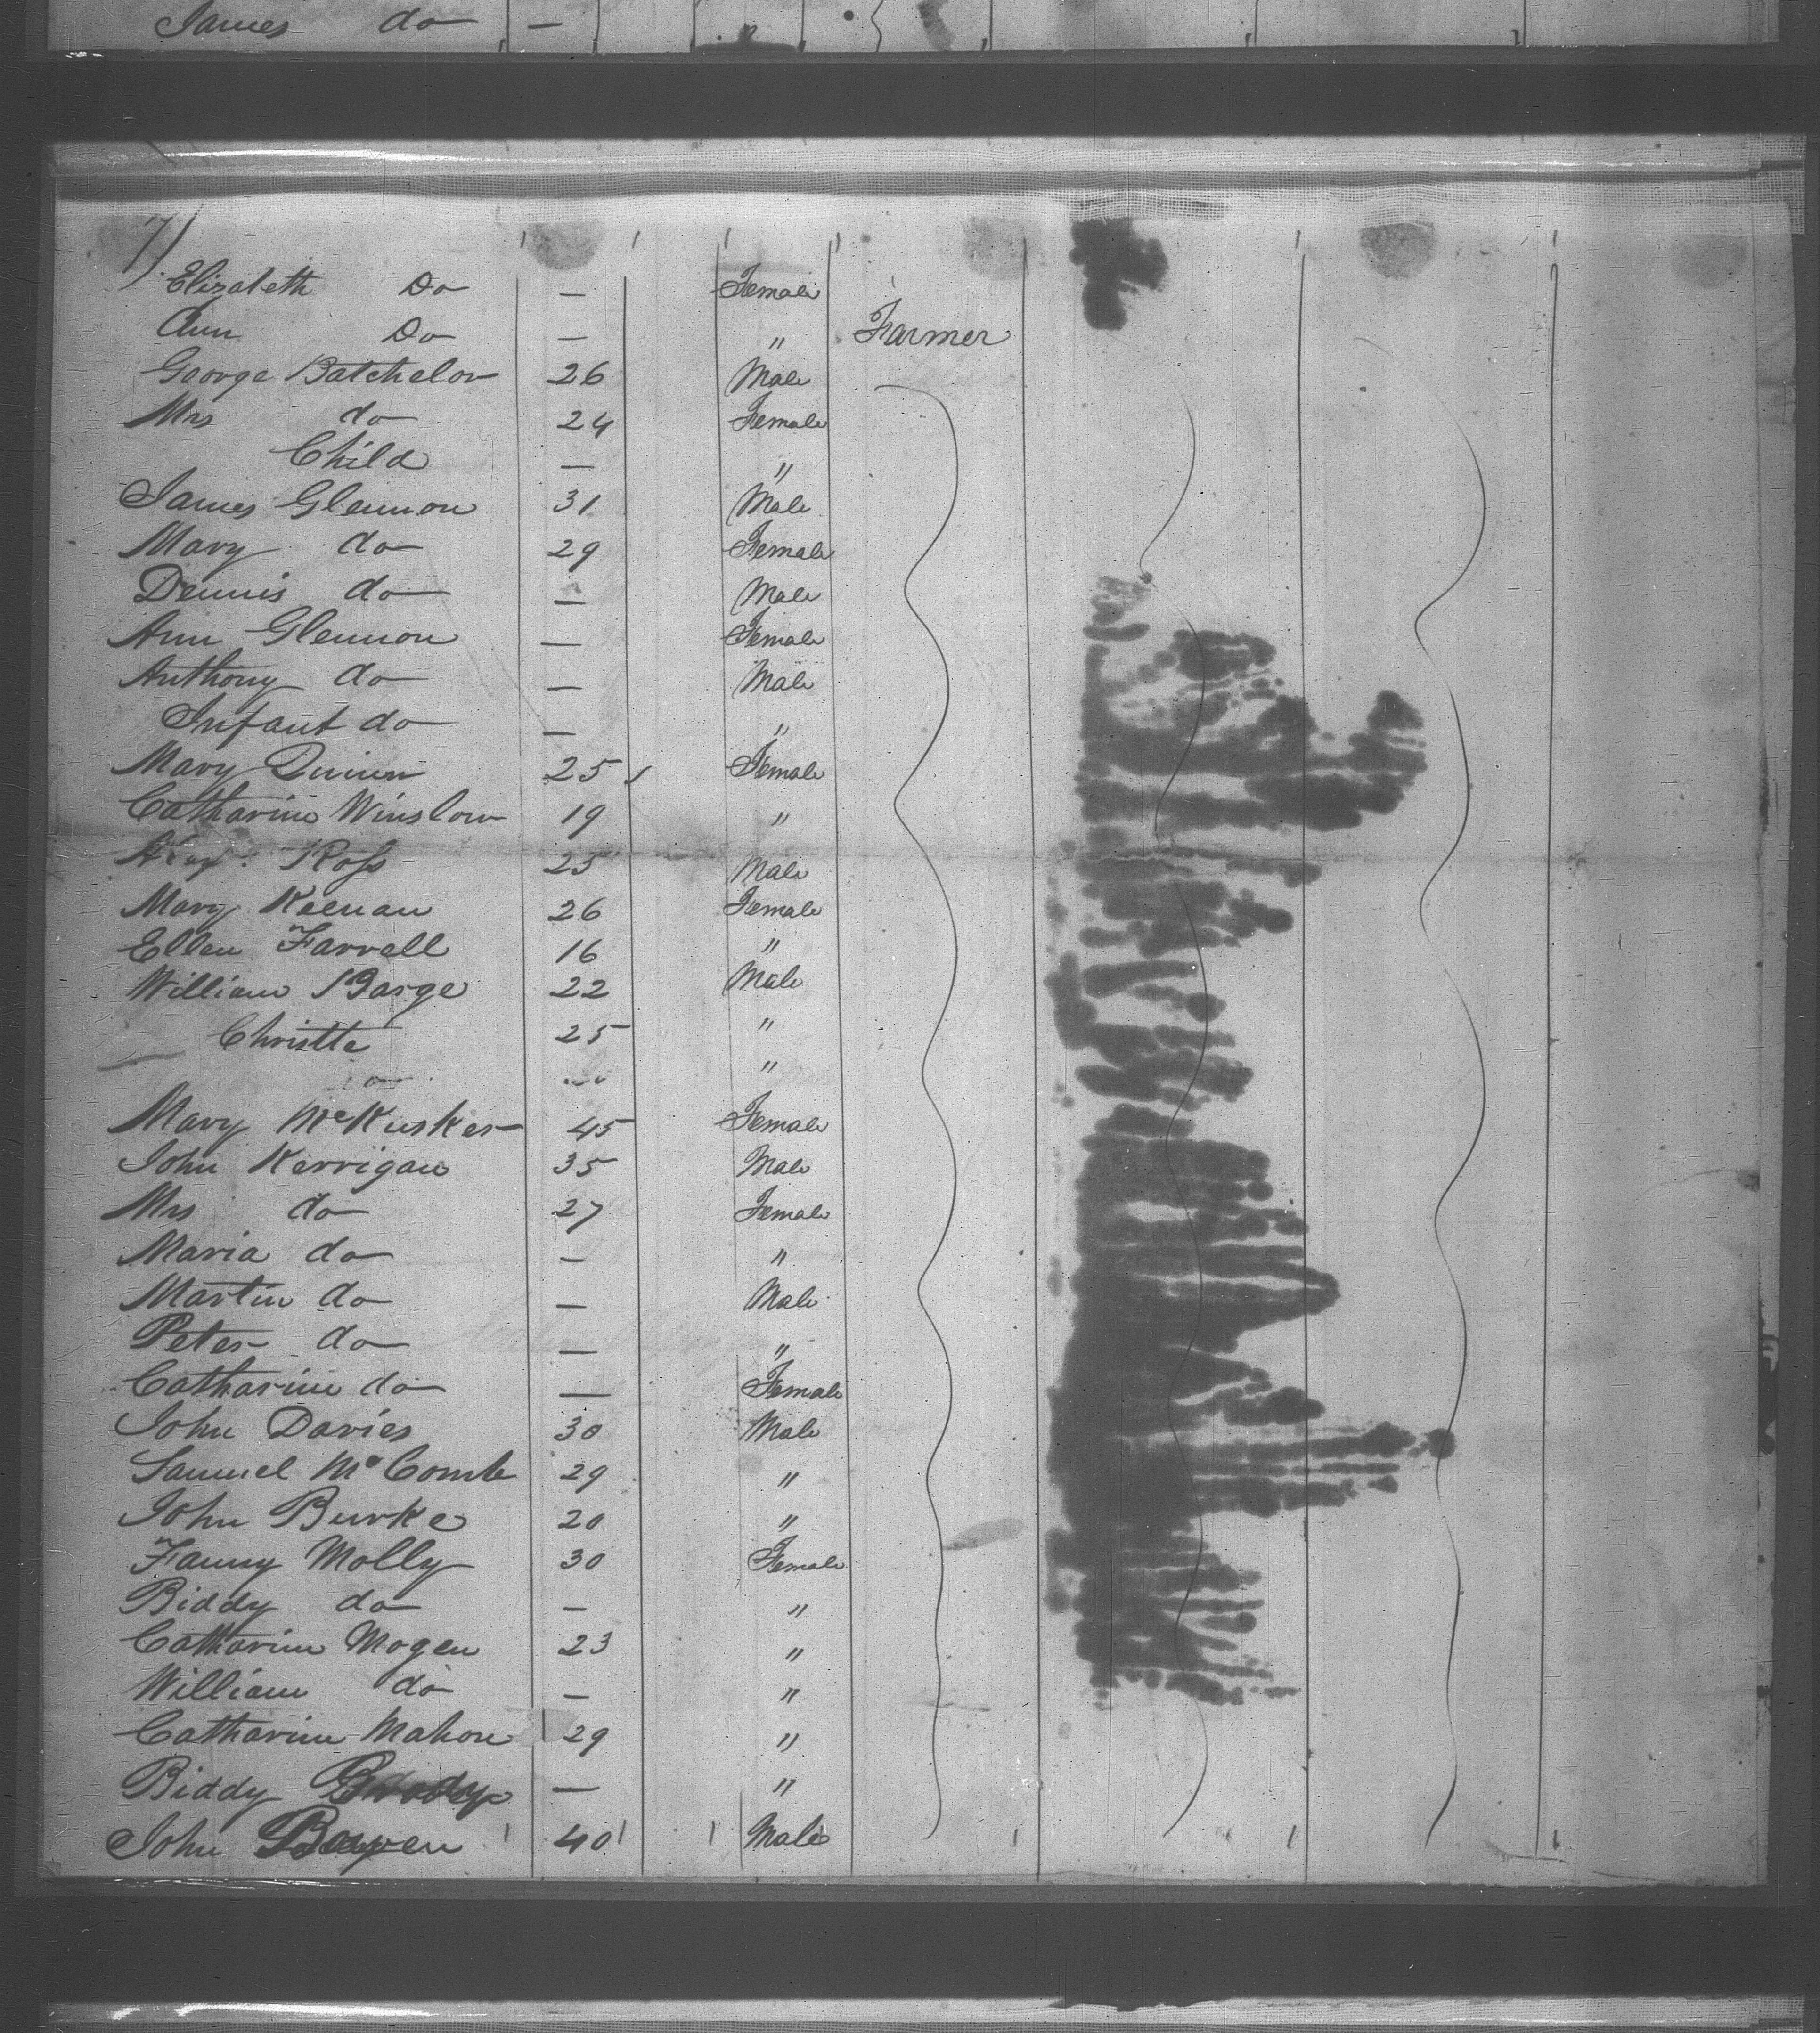 James do —
7)
Elizabeth Do — Female
Ann Do — " Farmer
George Batchelor 26 Male
Mrs do 24 Female
Child — "
James Glennon 31 Male
Mary do 29 Female
Dennis do — Male
Ann Glennon — Female
Anthony do — Male
Infant do — "
Mary Quinn 25 Female
Catharine Winslow 19 "
Ross 25 Male
Mary Keenan 26 Female
Ellen Farrell 16 "
William Barge 22 Male
Christte 25 "
"
Mary McKusker 45 Female
John Kerrigan 35 Male
Mrs do 27 Female
Maria do — "
Martin do — Male
Peter do — "
Catharine do — Female
John Davies 30 Male
Samuel McComb 29 "
John Burke 20 "
Fanny Molly 30 Female
Biddy do — "
Catharine Mogen 23 "
William do — "
Catharine Mahon 29 "
Biddy — "
John 40 Male